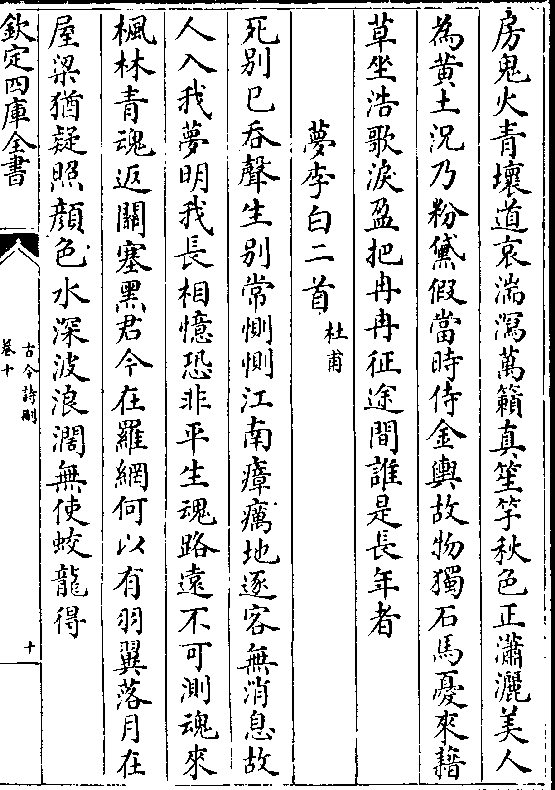 房鬼火青壞道哀湍瀉萬籟真笙竽秋色正瀟灑美人
為黄土況乃粉黛假當時侍金輿故物獨石馬憂來藉
草坐浩歌淚盈把冉冉征途間誰是長年者
夢李白二首 杜甫
死别已吞聲生别常惻惻江南瘴癘地逐客無消息故
人入我夢明我長相憶恐非平生魂路遠不可測魂來
楓林青魂返關塞黑君今在羅網何以有羽翼落月在
屋梁猶疑照顔色水深波浪濶無使蛟龍得
欽定四庫全書
古今詩刪
卷十
十